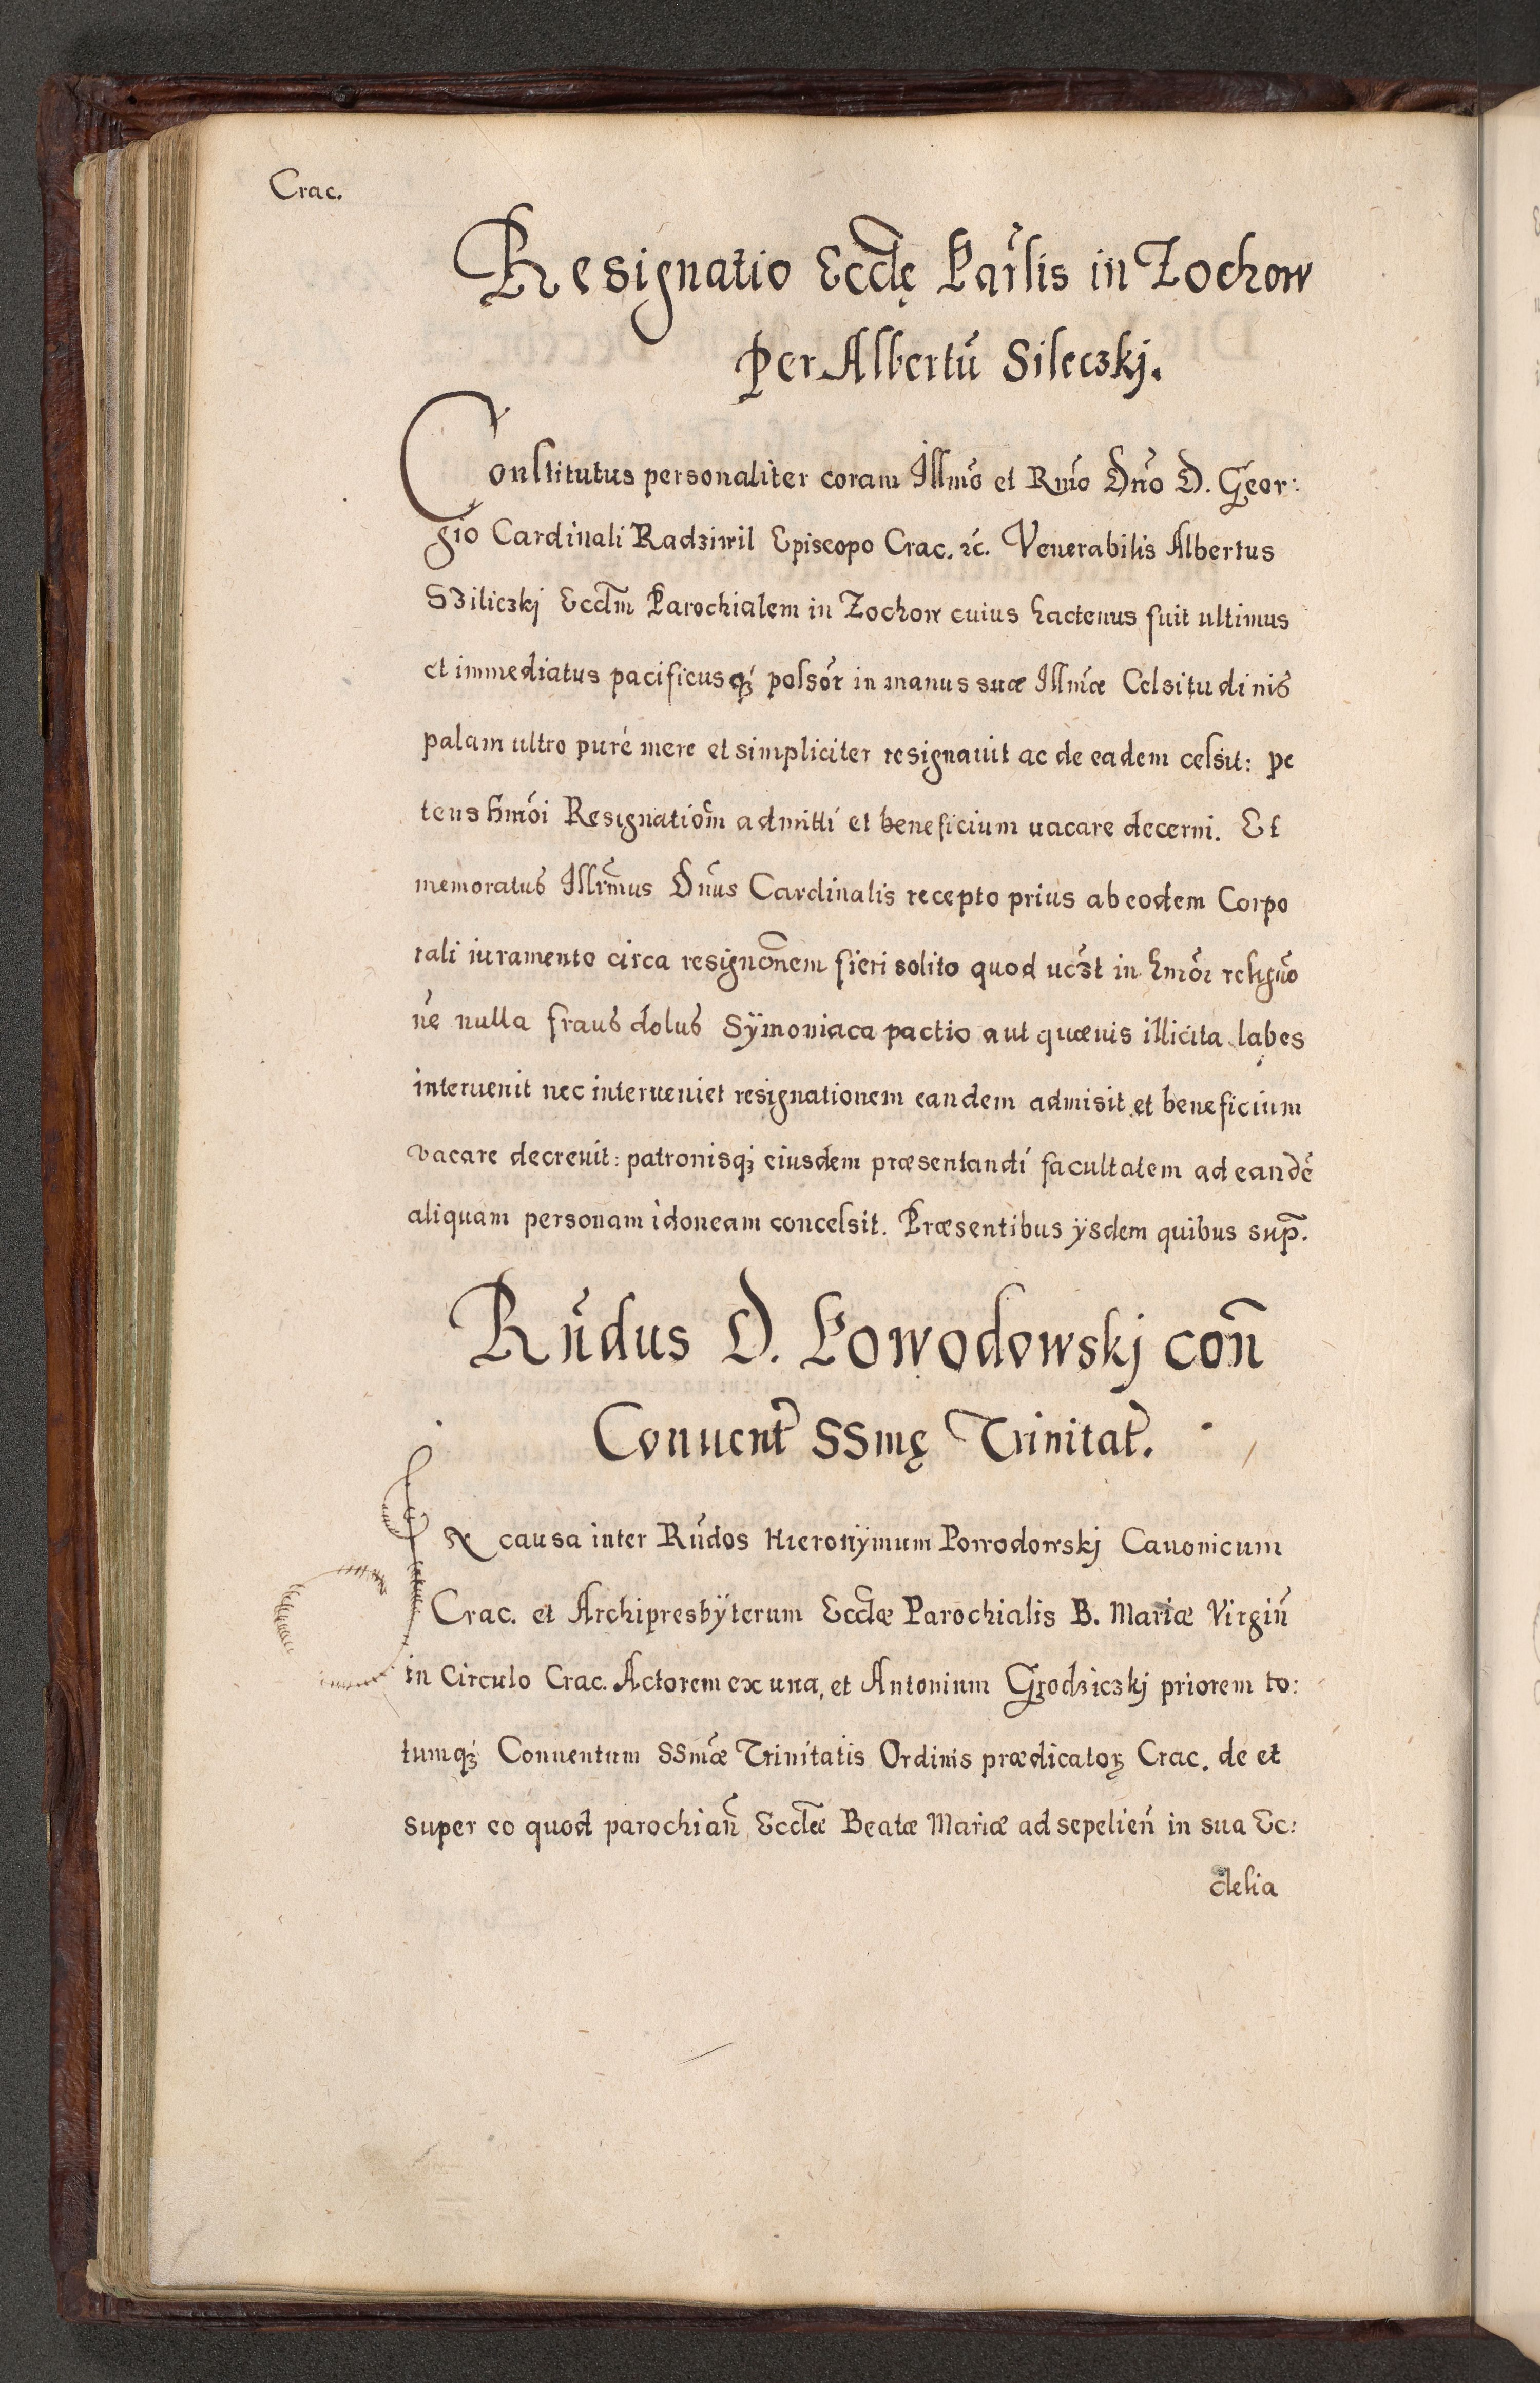 Crac.
Resignatio Eccłę Par̃lis in Zochow
Per Albertũ Sileczkj.
Constitutus personaliter coram Illm̃o et Rm̃o Dño D. Geor:
gio Cardinali Radziwil Episcopo Crac. ꝛc̃. Venerabilis Albertus
Sziliczkj Eccl̃m Parochialem in Zochow cuius hactenus fuit ultimus
et immediatus pacificusqꝫ possor̃ in manus suæ Illm̃æ Celsitudinis
palam ultro puré mere et simpliciter resignauit ac de eadem celsit: pe
tens hm̃oi Resignatiom̃ admitti et beneficium uacare decerni. Et
memoratus Illrm̃us Dñus Cardinalis recepto prius ab eodem Corpo
rali iuramento circa resignõnem fieri solito quod uczt in hmõi resigño
ñe nulla fraus dolus Sÿmoniaca pactio aut quæuis illicita labes
interuenit nec interueniet resignationem eandem admisit et beneficium
vacare decreuit: patronisqꝫ eiusdem præsentandi facultatem ad eandẽ
aliquam personam idoneam concessit. Præsentibus ÿsdem quibus sup̃.
Rñdus D. Powodowskj coñ
Conuent̃ SSmę Trinitat̃.
Ex causa inter Rñdos Hieronÿmum Powodowskj Canonicum
Crac. et Archipresbÿterum Eccl̃æ Parochialis B. Mariæ Virgiñ
in Circulo Crac. Actorem ex una, et Antonium Grodziczkj priorem to:
tumqꝫ Conuentum SSm̃æ Trinitatis Ordinis prædicatoꝝ Crac. de et
super eo quod parochiañ Eccl̃æ Beatæ Mariæ ad sepelieñ in sua Ec:
clesia